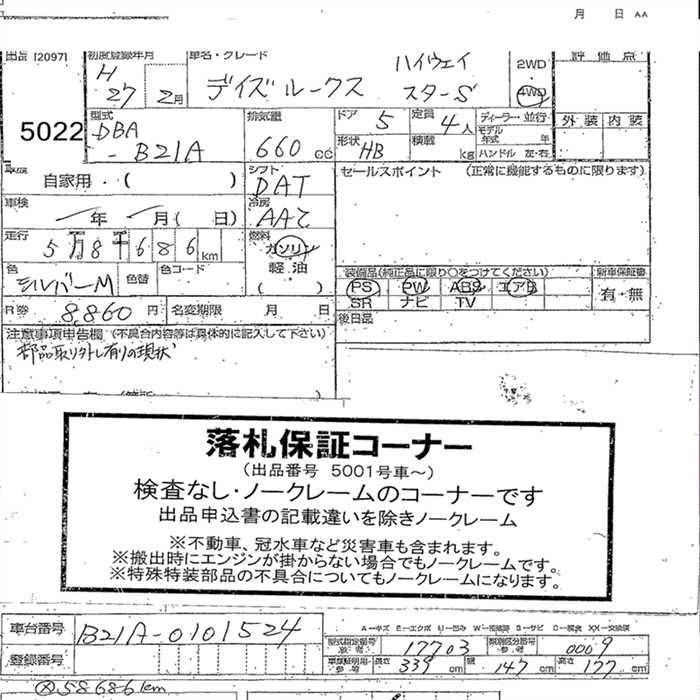 月 日 AA
出品 [2097] 初度登録年月 車名・グレード 評価点
H 27 2月 デイズルークス ハイウェイ スターS 2WD 4WD
5022 型式 DBA - B21A 排気量 660 cc ドア 5 定員 4人 ディーラー・並行 外装 内装
形状 HB 積載 kg モデル年式 年
ハンドル 左・右
自家用・( ) シフト DAT セールスポイント (正常に機能するものに限ります)
車検 年 月( 日) 冷房 AAC
走行 5万8千686km 燃料 ガソリン 軽油 ( )
色 シルバーM 色替 色コード
装備品(純正品に限り○をつけてください) 新車保証書
PS PW ABS エアB 有・無
SR ナビ TV
R券 8,860円 名変期限 月 日 後日品
注意事項申告欄 (不具合内容等は具体的に記入して下さい)
部品取り外し有りの現状
落札保証コーナー
(出品番号 5001号車～)
検査なし・ノークレームのコーナーです
出品申込書の記載違いを除きノークレーム
※不動車、冠水車など災害車も含まれます。
※搬出時にエンジンが掛からない場合でもノークレームです。
※特殊特装部品の不具合についてもノークレームになります。
A－キズ E－エクボ U－凹み W－補修跡 S－サビ C－腐食 XX－交換済
車台番号 B21A-0101524 型式指定番号 参考 17703 類別区分番号 参考 0009
登録番号 車庫証明用・参考 長さ 339cm 幅 147cm 高さ 177cm
58686km